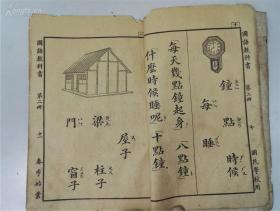 國語教科書 第二冊 十 國民學校用
鐘 點 時候
每 睡
每天幾點鐘起身 八點鐘
什麼時候睡呢 十點鐘
屋子
梁 柱子
門 窗子
國語教科書 第二冊 十一 春季始業